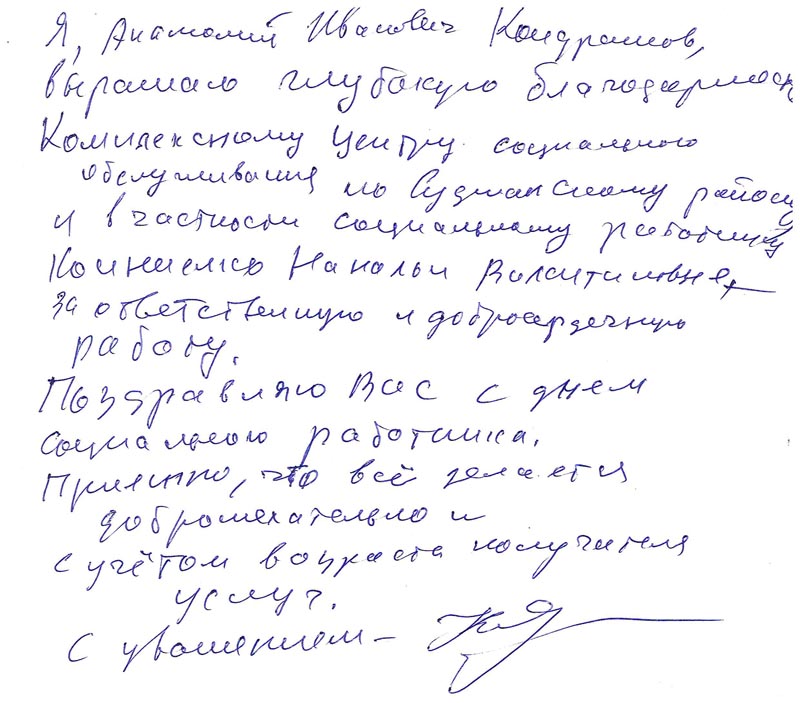 Я, Анатолий Иванович Кондрашов,
выражаю глубокую благодарность
Комплексному Центру социального
обслуживания по Суджанскому району
и в частности социальному работнику
Наталье Валентиновне,
за ответственную и добросердечную
работу.
Поздравляю Вас с днем
социального работника.
Приятно, что всё делается
доброжелательно и
с учётом возраста получателя
услуг.
С уважением –